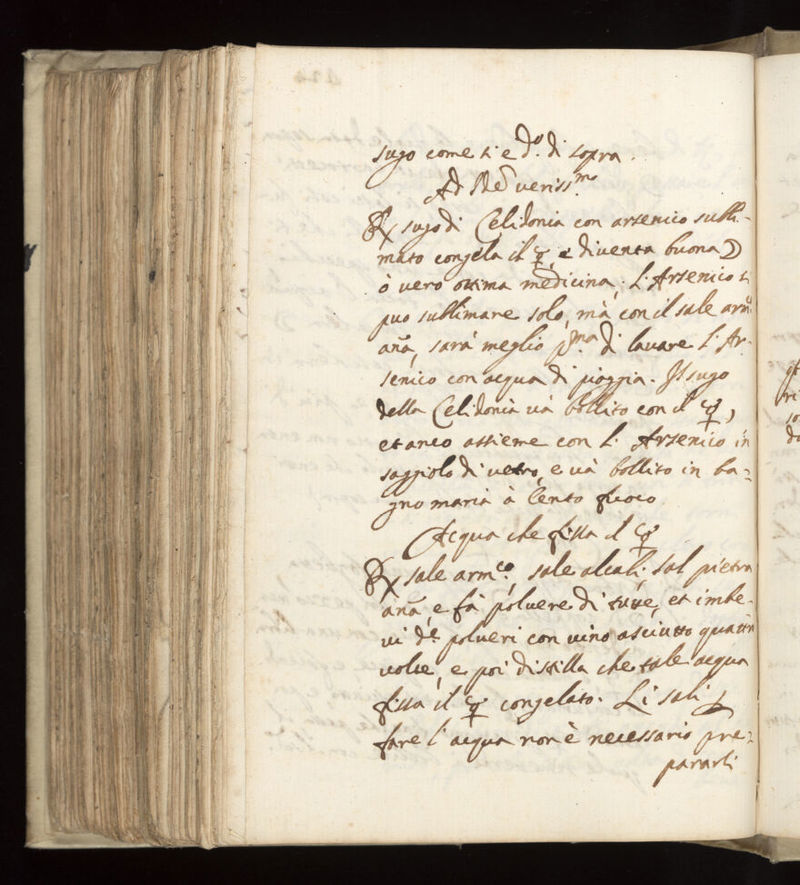 sugo come si e d.º di sopra.
Ad Idẽ veriss.mo
℞ sugo di Celidonia con arsenico subli-
mato congela il ☿ e diventa buona ☽
ò vero ottima medicina, L'Arsenico si
puo sublimare solo, mà con il sale arm.co
anã, sarà meglio p.ma di lavare L'Ar-
senico con acqua di pioggia. Il sugo
della Celidonia và bollito con il ☿,
et anco assieme con L'Arsenico in
saggiolo di vetro, e và bollito in ba-
gno maria à lento fuoco
Acqua che fissa il ☿
℞ sale arm.co, sale alcali. sal pietra
anã, e fà polvere di tutte, et imbe-
vi d.e polveri con vino asciutto quattro
volte, e poi distilla che tale acqua
fissa il ☿ congelato. Li sali p
fare l'acqua non è necessario pre-
pararli